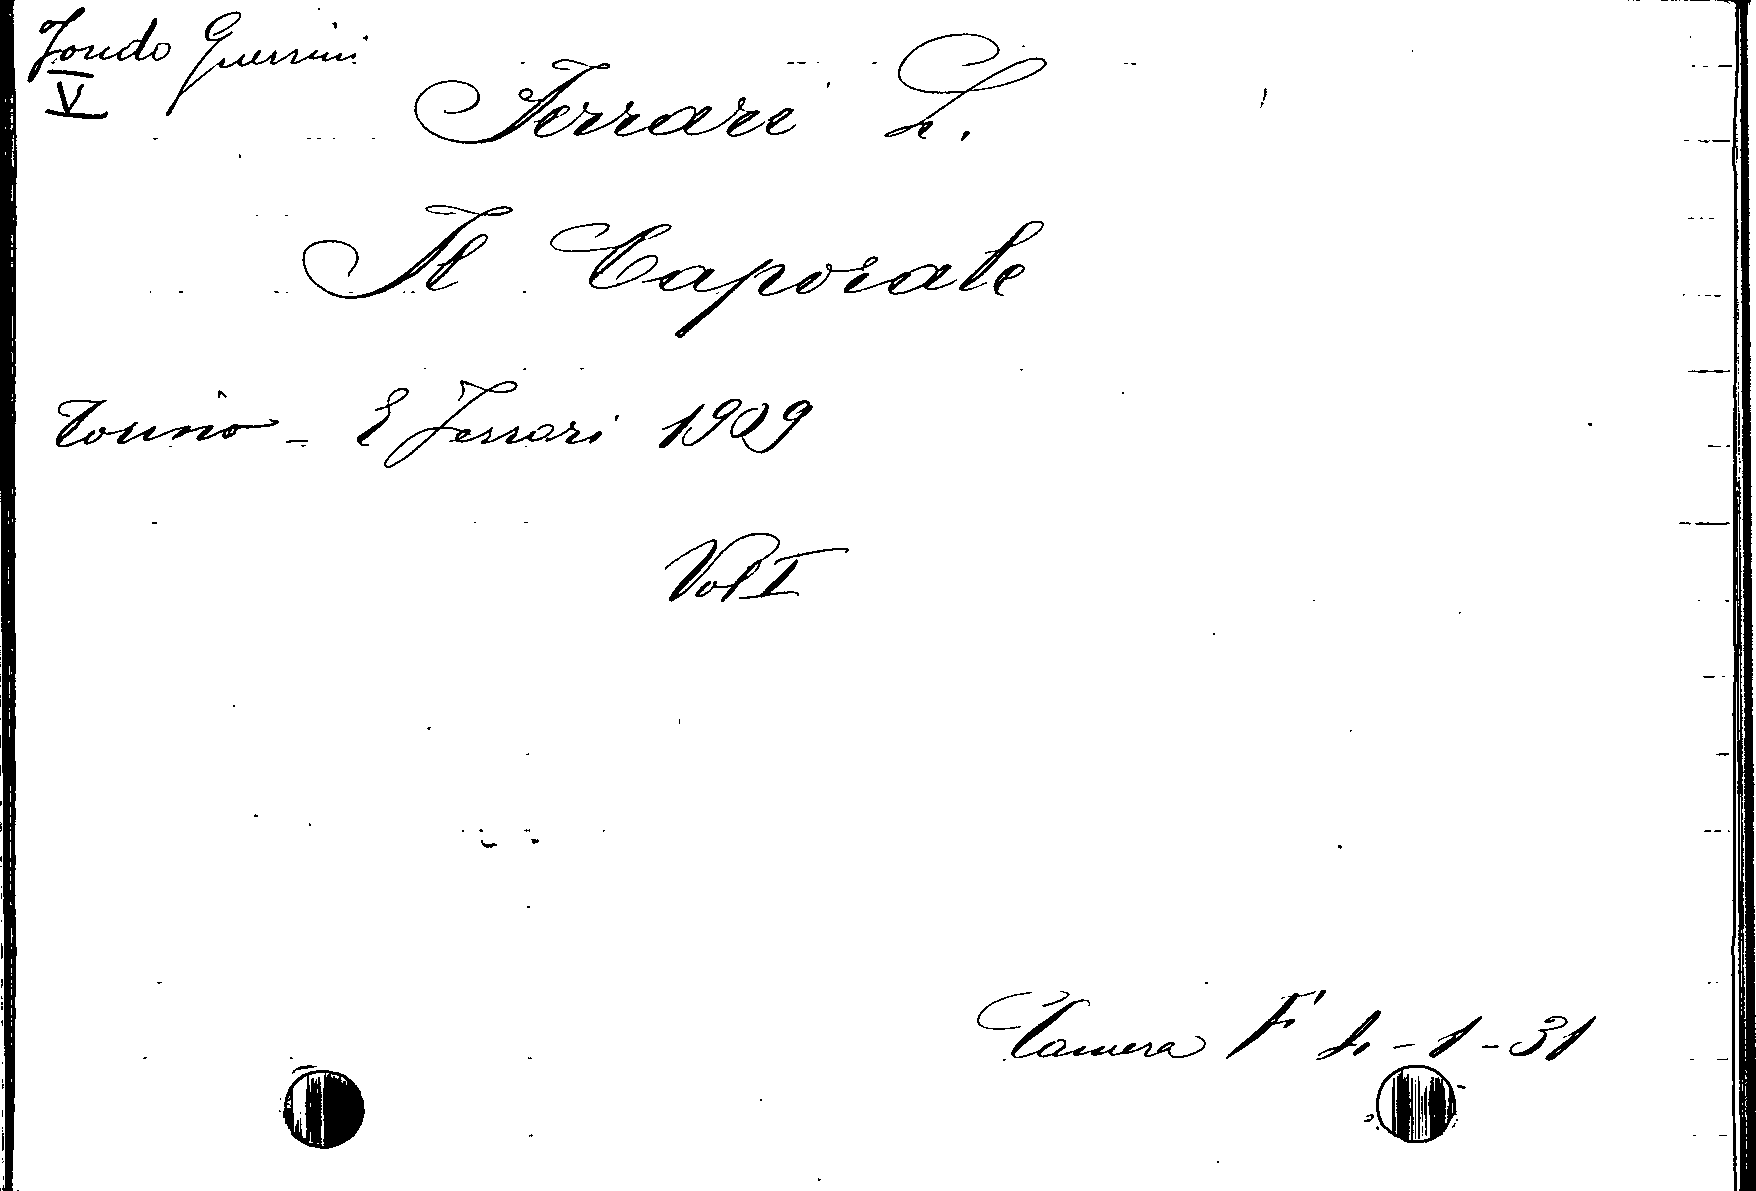 Fondo Guerrini
V
Ferrari L.
Il Caporale
Torino - E Ferrari 1909
Vol I
Camera F L - 1 - 31